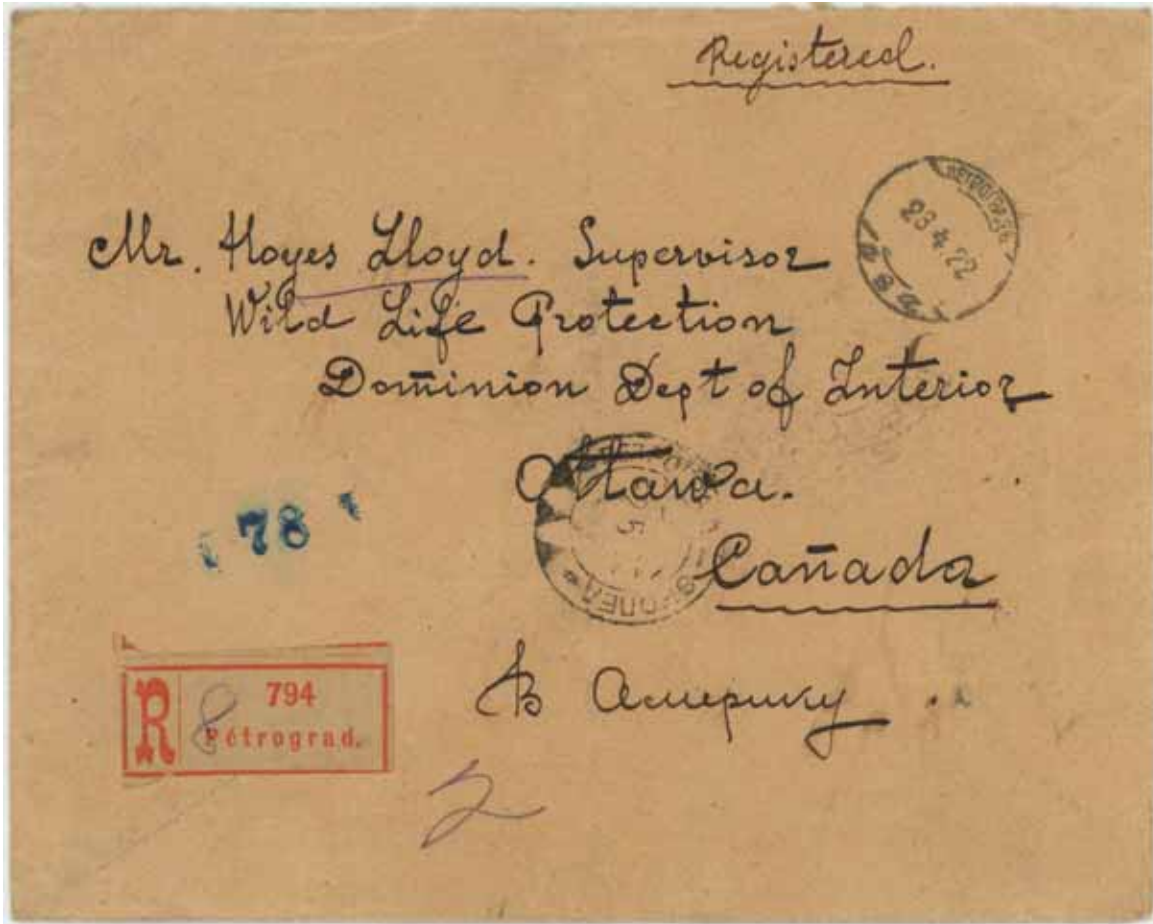 Registered.
ПЕТРОГРАДЪ
23 4 22
Mr. Hoyes Lloyd. Supervisor
Wild Life Protection
Dominion Dept of Interior
Ottawa.
5
Cañada
78
R 8 794
Pétrograd.
В Америку
2